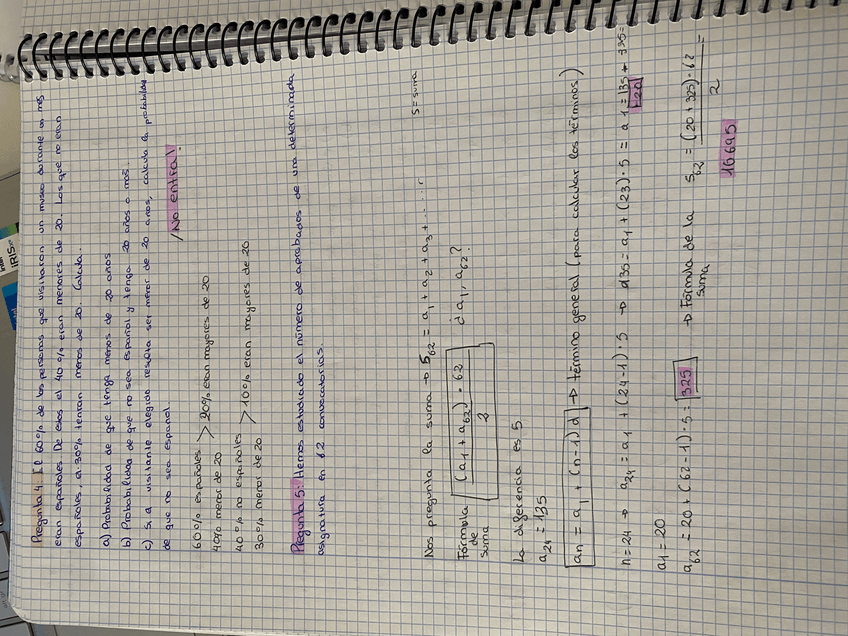 Pregunta 4: El 60% de las personas que visitaron un museo durante un mes
eran españoles. De esos el 40% eran menores de 20. Los que no eran
españoles, el 30% tenían menos de 20. Calcula.
a) Probabilidad de que tenga menos de 20 años
b) Probabilidad de que no sea español y tenga 20 años o más.
c) Si a visitante elegido resulta ser menor de 20 años, calcula la probabilidad
de que no sea español.
¡No entra!
60% españoles > 20% eran mayores de 20
40% menor de 20
40% no españoles > 10% eran mayores de 20
30% menor de 20
Pregunta 5: Hemos estudiado el número de aprobados de una determinada
asignatura en 62 convocatorias.
S = suma
Nos pregunta la suma → S62 = a1 + a2 + a3 + ......
Fórmula de suma (a1 + a62) · 62 / 2 ¿a1, a62?
La diferencia es 5
a24 = 135
an = a1 + (n-1) · d → término general (para calcular los términos)
n = 24 → a24 = a1 + (24-1) · 5 → 135 = a1 + (23) · 5 = a1 = 135 +
= 20
a1 = 20
a62 = 20 + (62-1) · 5 = 325 → Fórmula de la suma S62 = (20 + 325) · 62 / 2 =
10695
IRIS